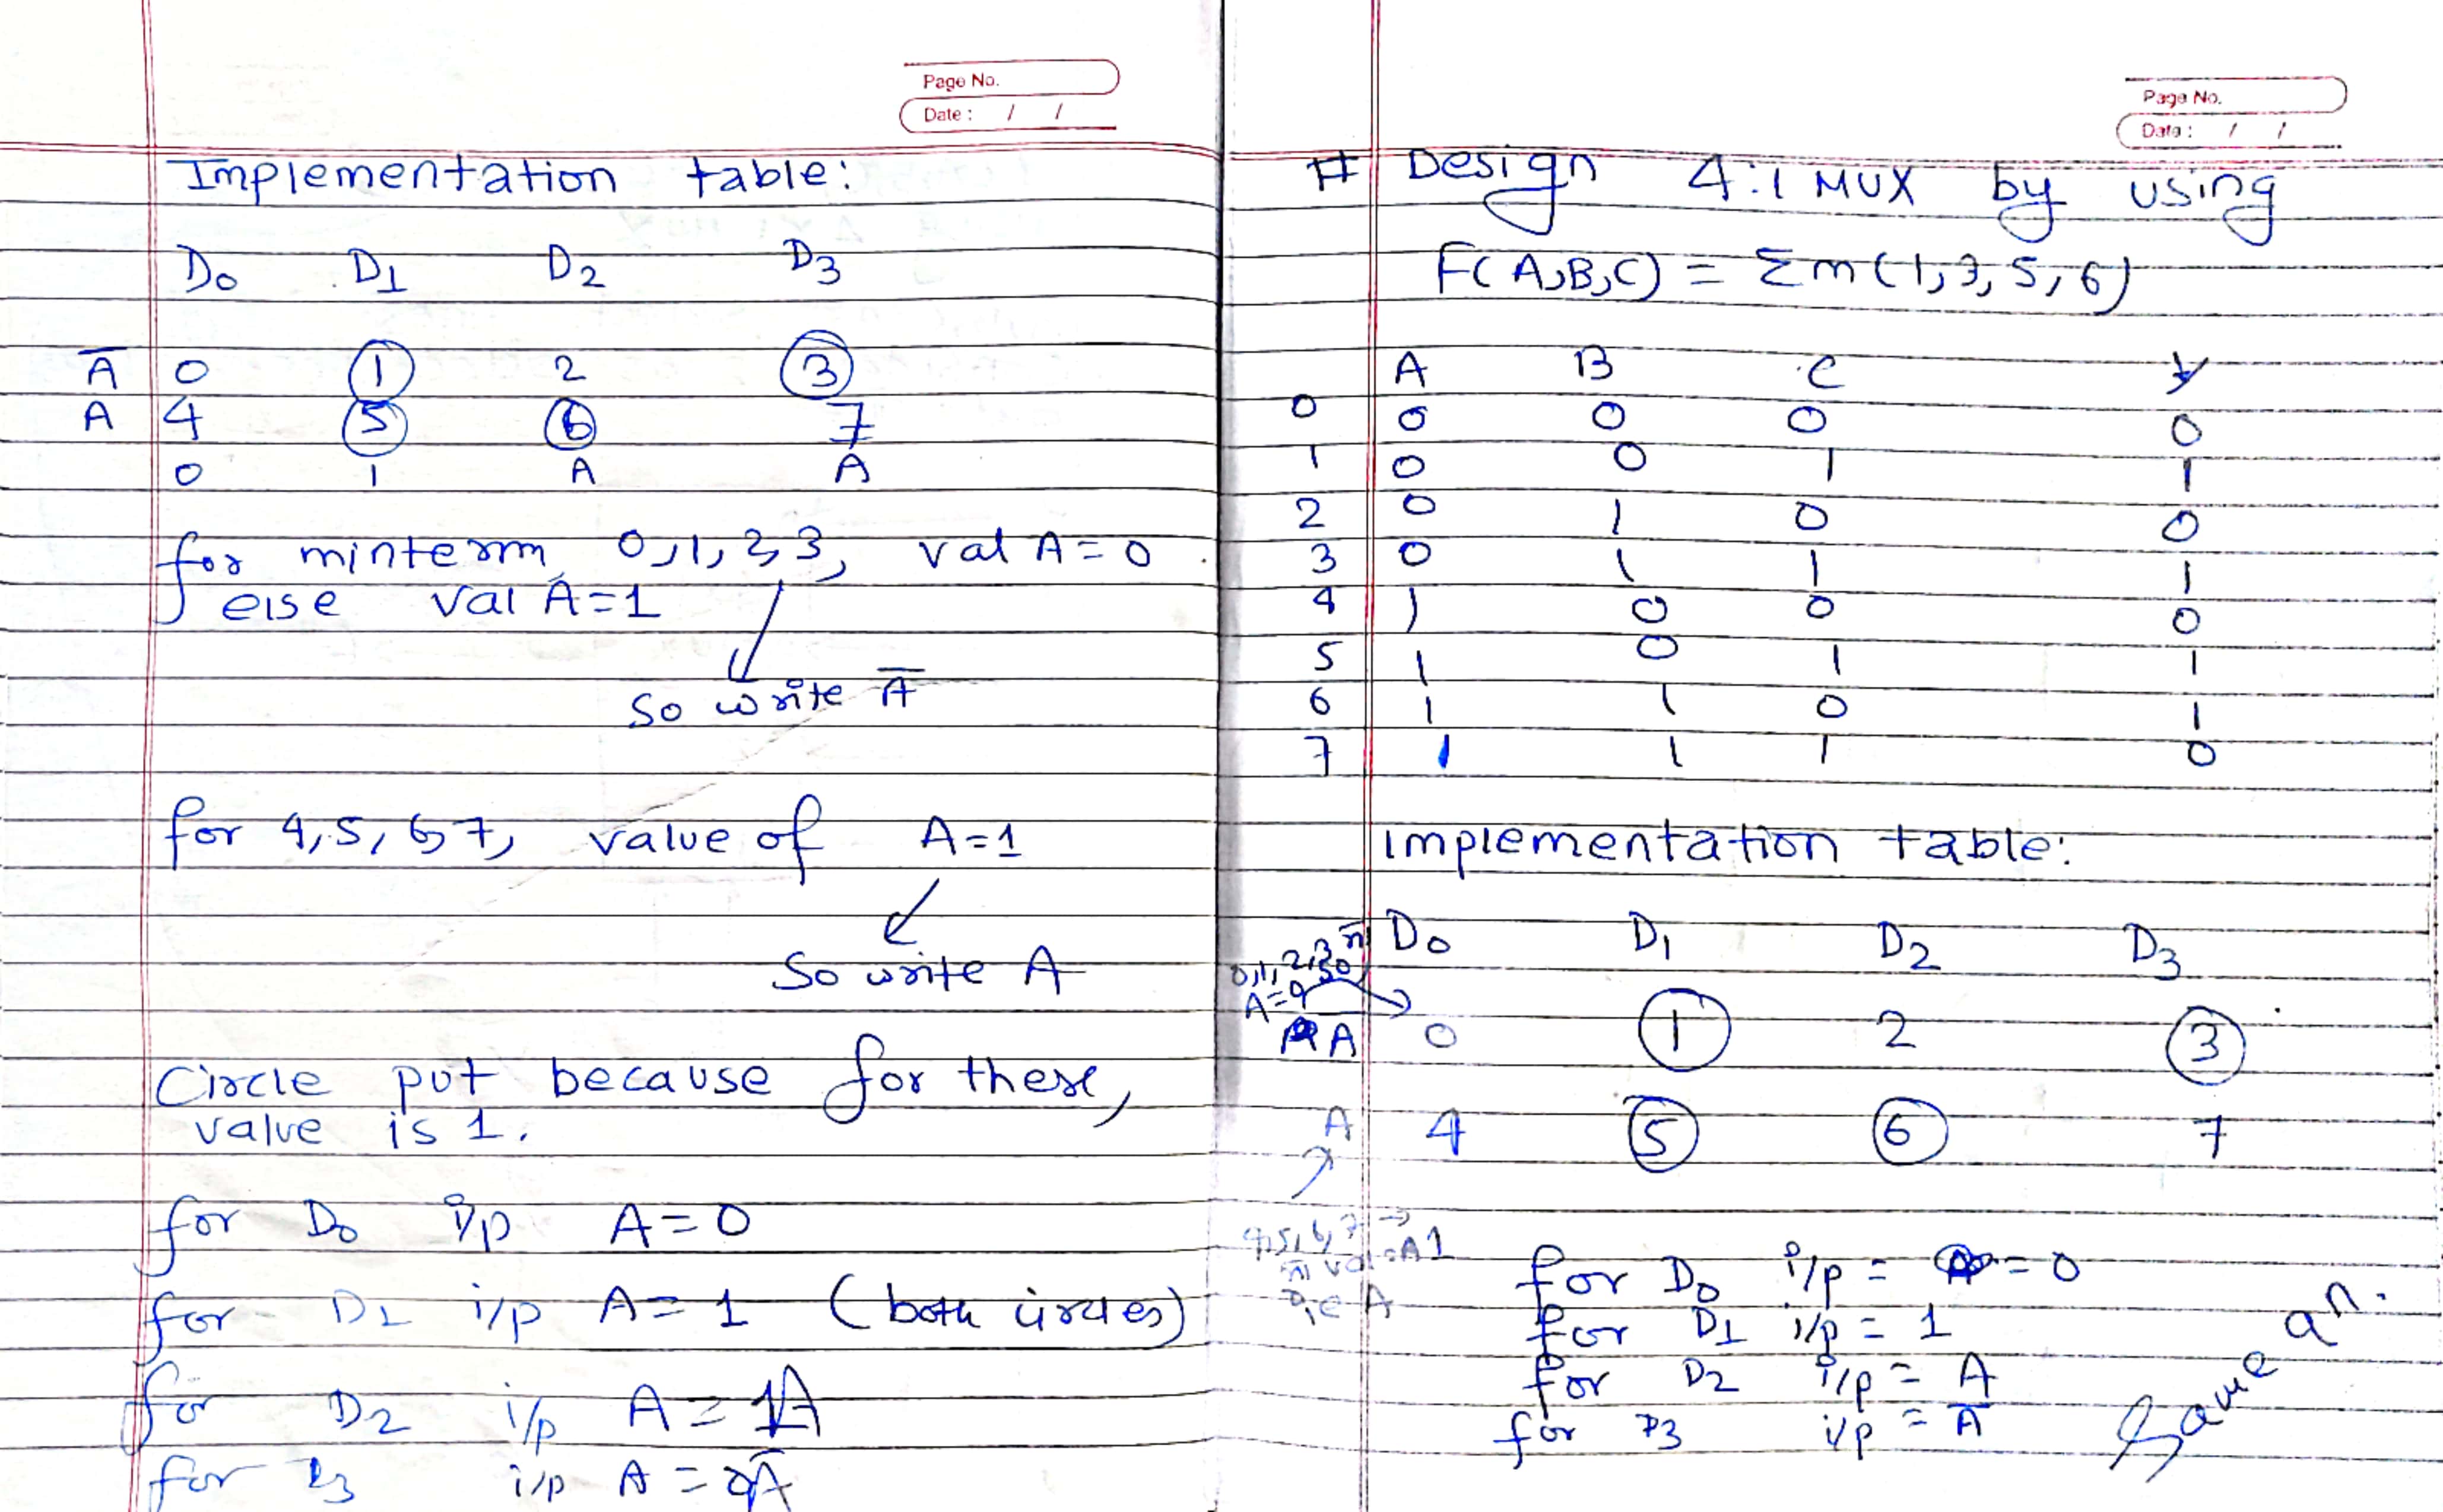 Page No.
Date : / /
Implementation table:
D0 D1 D2 D3
A̅ 0 1 2 3
A 4 5 6 7
0 1 A A̅
for minterm 0,1,2,3, val A=0
else val A=1
so write A̅
for 4,5,6,7, value of A=1
So write A
Circle put because for these,
value is 1.
for D0 i/p A=0
for D1 i/p A=1 (both circles)
for D2 i/p A = A
for D3 i/p A = A̅
Page No.
Date : / /
# Design 4:1 MUX by using
F(A,B,C) = Σm(1,3,5,6)
A B C Y
0 0 0 0 0
1 0 0 1 1
2 0 1 0 0
3 0 1 1 1
4 1 0 0 0
5 1 0 1 1
6 1 1 0 1
7 1 1 1 0
Implementation table:
D0 D1 D2 D3
0,1,2,3
A=0 so
A 0 1 2 3
A 4 5 6 7
4,5,6,7 →
val A 1
i.e A
for D0 i/p = 0
for D1 i/p = 1
for D2 i/p = A
for D3 i/p = A̅
Same an.